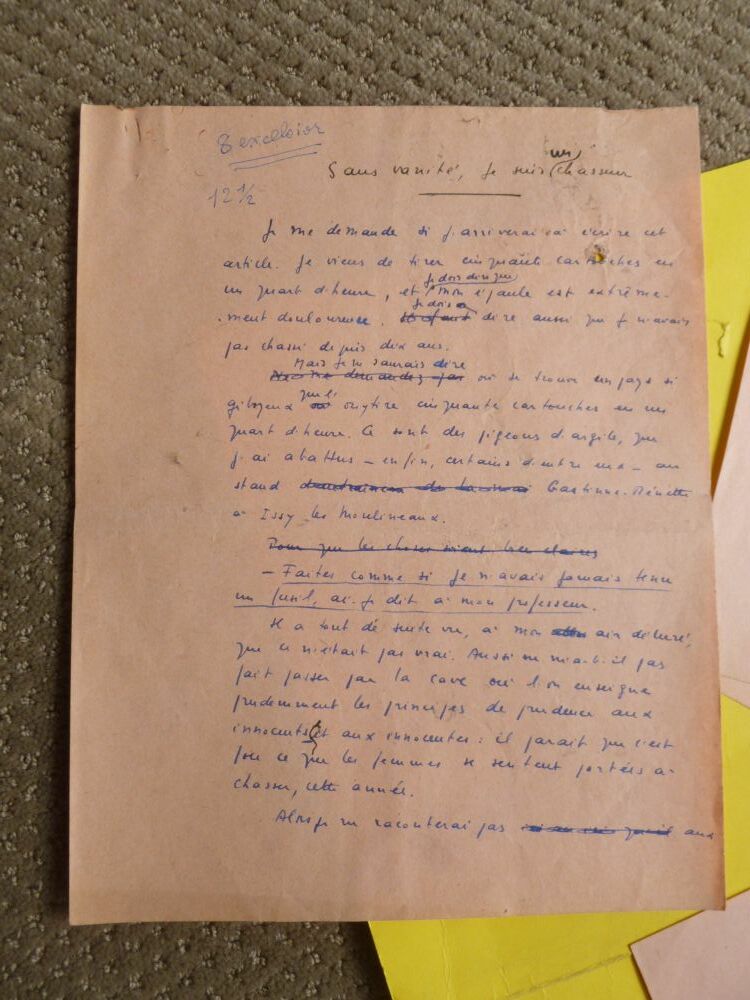 8 excelsior
12 1/2
Sans vanité, je suis un chasseur
Je me demande si j'arriverai à écrire cet
article. Je viens de tirer cinquante cartouches en
un quart d'heure, et je dois dire que mon épaule est extrême-
ment douloureuse. Je dois dire aussi que je n'avais
pas chassé depuis dix ans.
Mais je ne saurais dire où se trouve un pays si
giboyeux qu'on y tire cinquante cartouches en un
quart d'heure. Ce sont des pigeons d'argile, que
j'ai abattus - enfin, certains d'entre eux - au
stand Gastinne-Renette
à Issy les Moulineaux.
Pour que les choses soient bien claires
- Faites comme si je n'avais jamais tenu
un fusil, ai-je dit à mon professeur.
Il a tout de suite vu, à mon air déluré,
que ce n'était pas vrai. Aussi ne m'a-t-il pas
fait passer par la cave où l'on enseigne
prudemment les principes de prudence aux
innocents et aux innocentes : il paraît que c'est
fou ce que les femmes se sentent portées à
chasser, cette année.
Alors je ne raconterai pas aux